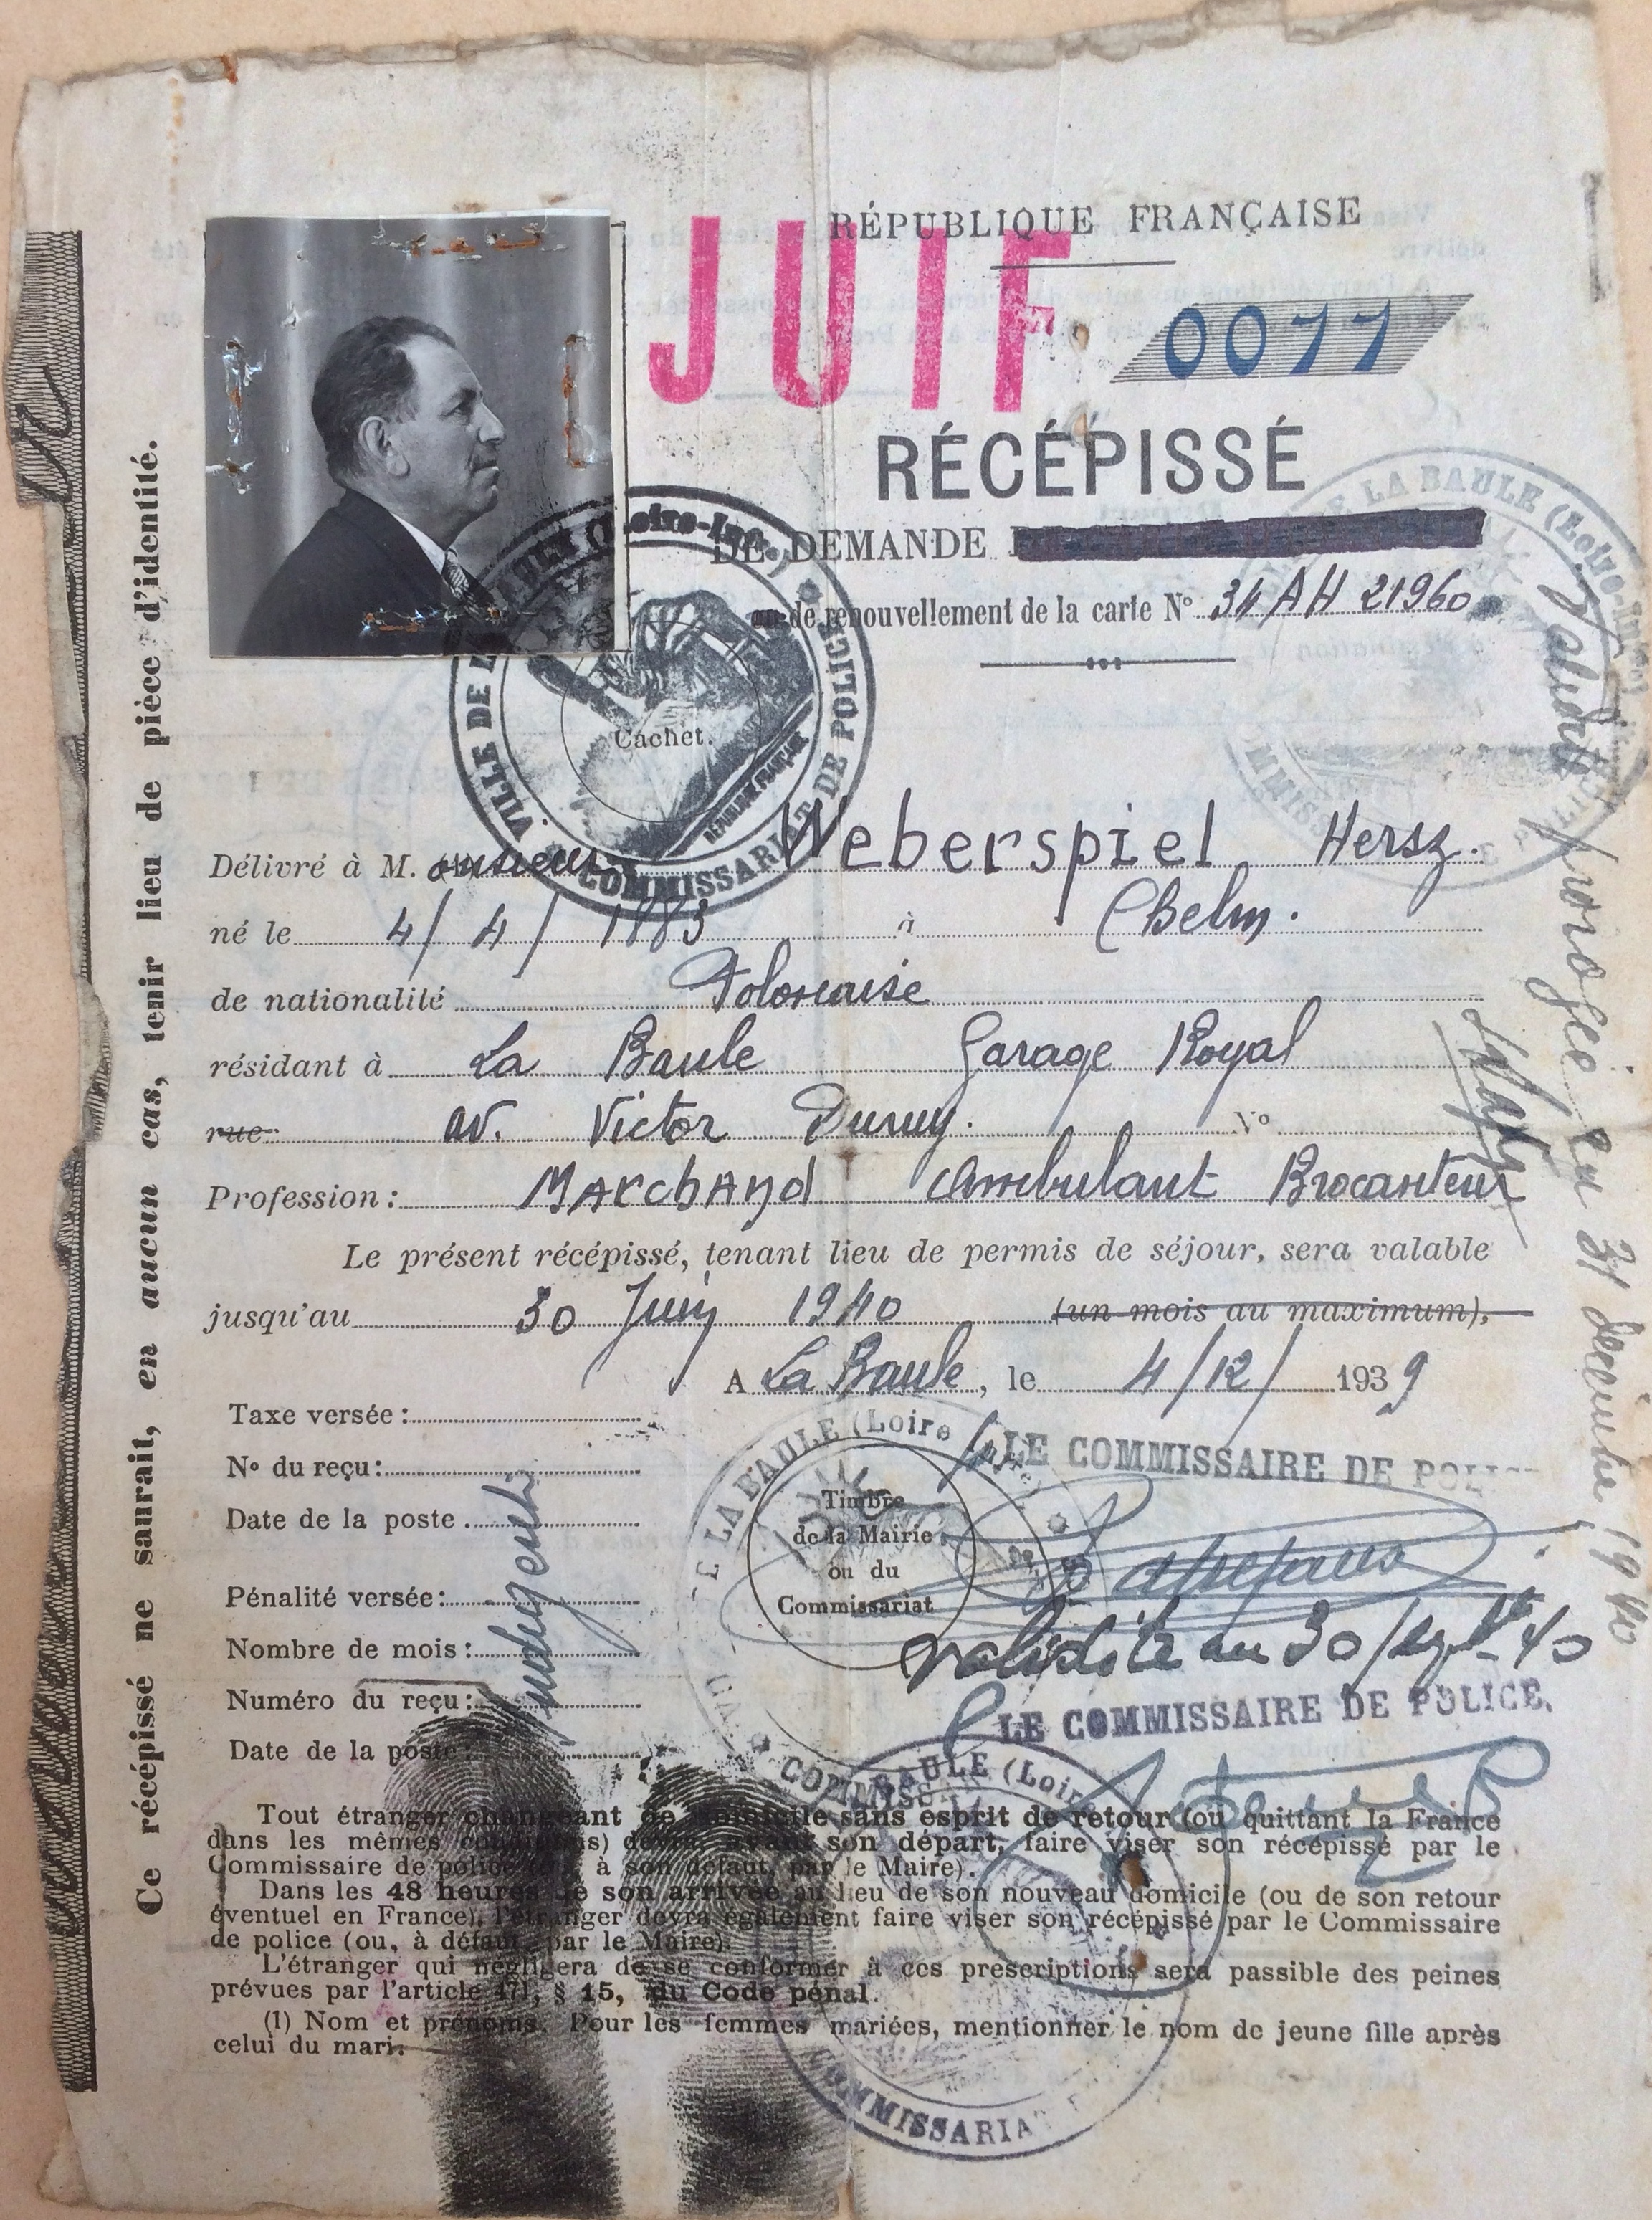 RÉPUBLIQUE FRANÇAISE
JUIF
0077
RÉCÉPISSÉ
DE DEMANDE
ou de renouvellement de la carte N° 34 AH 21960
Ce récépissé ne saurait, en aucun cas, tenir lieu de pièce d'identité.
VILLE DE LA BAULE (Loire-Inf.)
COMMISSARIAT DE POLICE
RÉPUBLIQUE FRANÇAISE
Cachet.
DE LA BAULE (Loire-Inf.)
Délivré à M. onsieur Weberspiel Hersz.
né le 4/4/1883 à Chelm.
de nationalité Polonaise
résidant à La Baule Garage Royal
rue av. Victor Duruy. N°
Profession: Marchand Ambulant Brocanteur
Le présent récépissé, tenant lieu de permis de séjour, sera valable
jusqu'au 30 Juin 1940 (un mois au maximum),
A La Baule, le 4/12/1939
Validité prorogée au 31 décembre 1940
Taxe versée:
N° du reçu:
Date de la poste
Pénalité versée:
Nombre de mois:
Numéro du reçu:
Date de la poste:
indigent
LE COMMISSAIRE DE POLICE
DE LA BAULE (Loire
Timbre
de la Mairie
ou du
Commissariat
validité au 30/sept 40
LE COMMISSAIRE DE POLICE,
COMMISSARIAT
BAULE (Loire
Tout étranger changeant de domicile sans esprit de retour (ou quittant la France
dans les mêmes conditions) devra, avant son départ, faire viser son récépissé par le
Commissaire de police (ou, à son défaut, par le Maire).
Dans les 48 heures de son arrivée au lieu de son nouveau domicile (ou de son retour
éventuel en France), l'étranger devra également faire viser son récépissé par le Commissaire
de police (ou, à défaut, par le Maire).
L'étranger qui négligera de se conformer à ces prescriptions sera passible des peines
prévues par l'article 471, § 15, du Code pénal.
(1) Nom et prénoms. Pour les femmes mariées, mentionner le nom de jeune fille après
celui du mari.
COMMISSARIAT